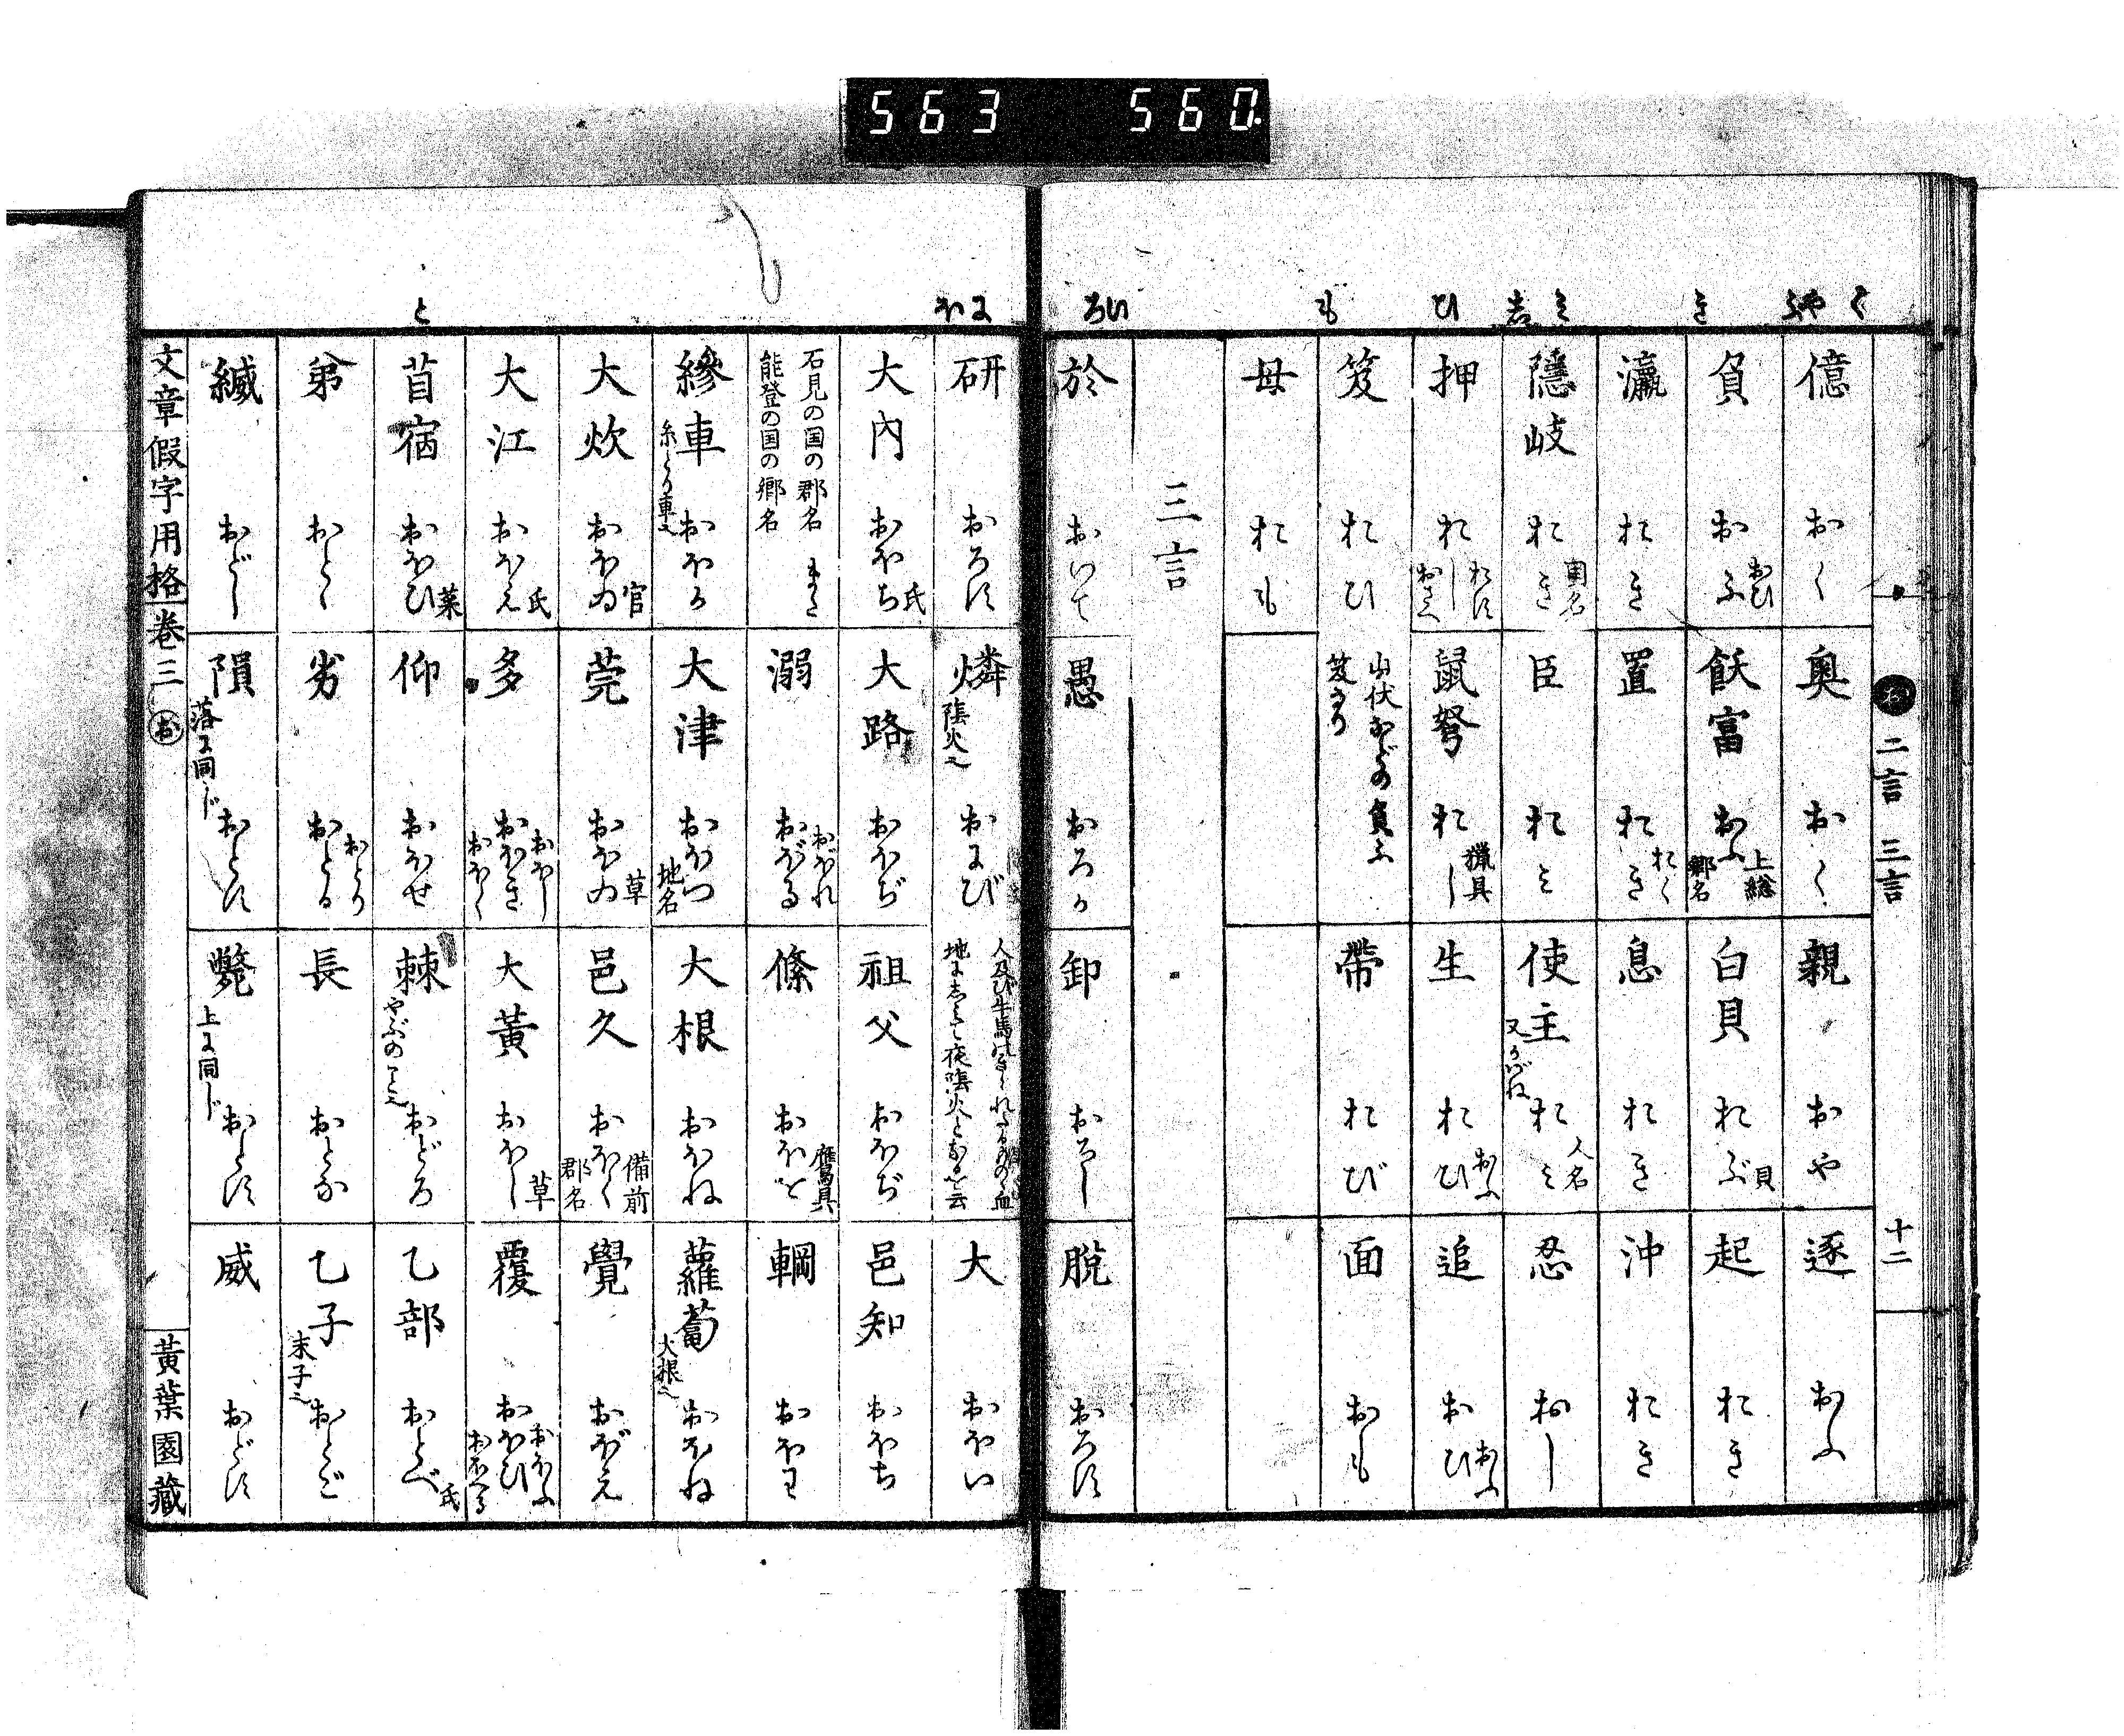 563 560
く や ふ き み し ひ も い ろ
お 二言 三言 十二
億 おく
奥 おく
親 おや
逐 おふ
負 おふ おひ
飫富 おふ 上総 郷名
白貝 おふ 貝
起 おき
瀛 おき
置 おき おく
息 おき
沖 おき
隠岐 おき 国名
臣 おみ
使主 又かばね おみ 人名
忍 おし
押 おし おす おさへ
鼠弩 おし 猟具
生 おひ おふ
追 おひ おふ
笈 おひ 山伏などの負ふ笈なり
帯 おび
面 おも
母 おも
三言
於 おいて
愚 おろか
卸 おろし
脱 おろす
に ほ と
研 おろす
燐 陰火也 おにび 人及び牛馬
大 おほい
大内 おほち 氏
大路 おほぢ
祖父 おほぢ
邑知 おほち
石見の国の郡名 また
能登の国の郷名
溺 おぼる おぼれ
絛 おほを 鷹具
輞 おほわ
縿車 糸とり車也 おほか
大津 おほつ 地名
大根 おほね
蘿蔔 大根也 おほね
大炊 おほゐ 官
莞 おほゐ 草
邑久 おほく 備前 郡名
覺 おぼえ
大江 おほえ 氏
多 おほき おほし おほく
大黄 おほし 草
覆 おほひ おほふ おほへる
苜宿 おほひ 菜
仰 おほせ
棘 やぶのこと也 おどろ
乙部 おとべ 氏
弟 おとと
劣 おとる おとり
長 おとな
乙子 末子也 おとご
縅 おどし
隕 落に同じ おとす
斃 上に同じ おとす
威 おどす
文章假字用格 巻三 お
黄葉園蔵